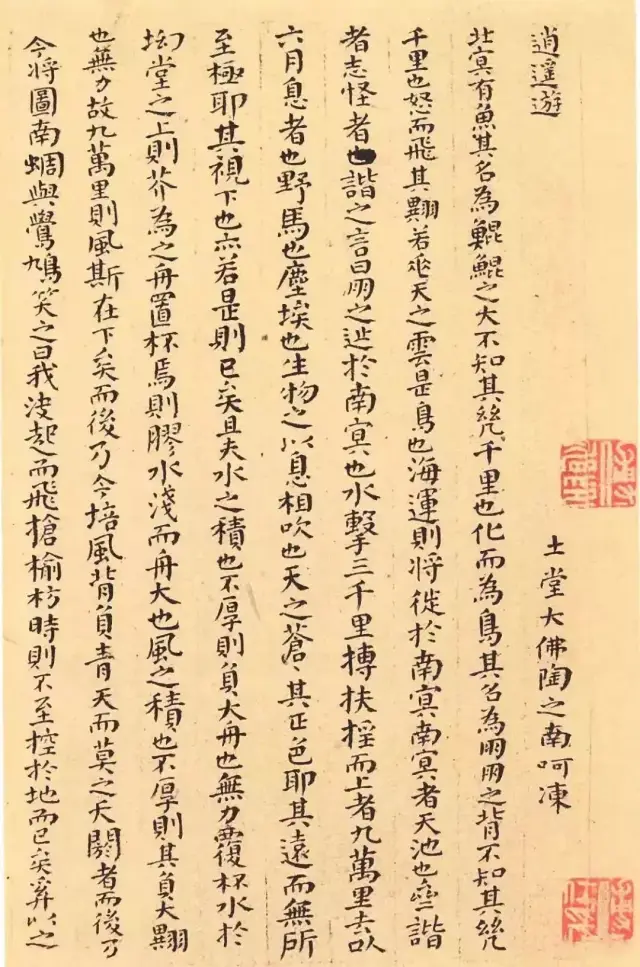 逍遥遊
土堂大佛陶之南呵凍
北冥有魚其名為鯤鯤之大不知其幾千里也化而為鳥其名為朋朋之背不知其幾
千里也怒而飛其翼若垂天之雲是鳥也海運則將徙於南冥南冥者天池也齊諧
者志怪者也諧之言曰朋之徙於南冥也水擊三千里摶扶揺而上者九萬里去以
六月息者也野馬也塵埃也生物之以息相吹也天之蒼〻其正色耶其遠而無所
至極耶其視下也亦若是則已矣且夫水之積也不厚則負大舟也無力覆杯水於
坳堂之上則芥為之舟置杯焉則膠水淺而舟大也風之積也不厚則其負大翼
也無力故九萬里則風斯在下矣而後乃今培風背負青天而莫之夭閼者而後乃
今將圖南蜩與鷽鳩笑之曰我決起而飛搶榆枋時則不至控於地而已矣奚以之